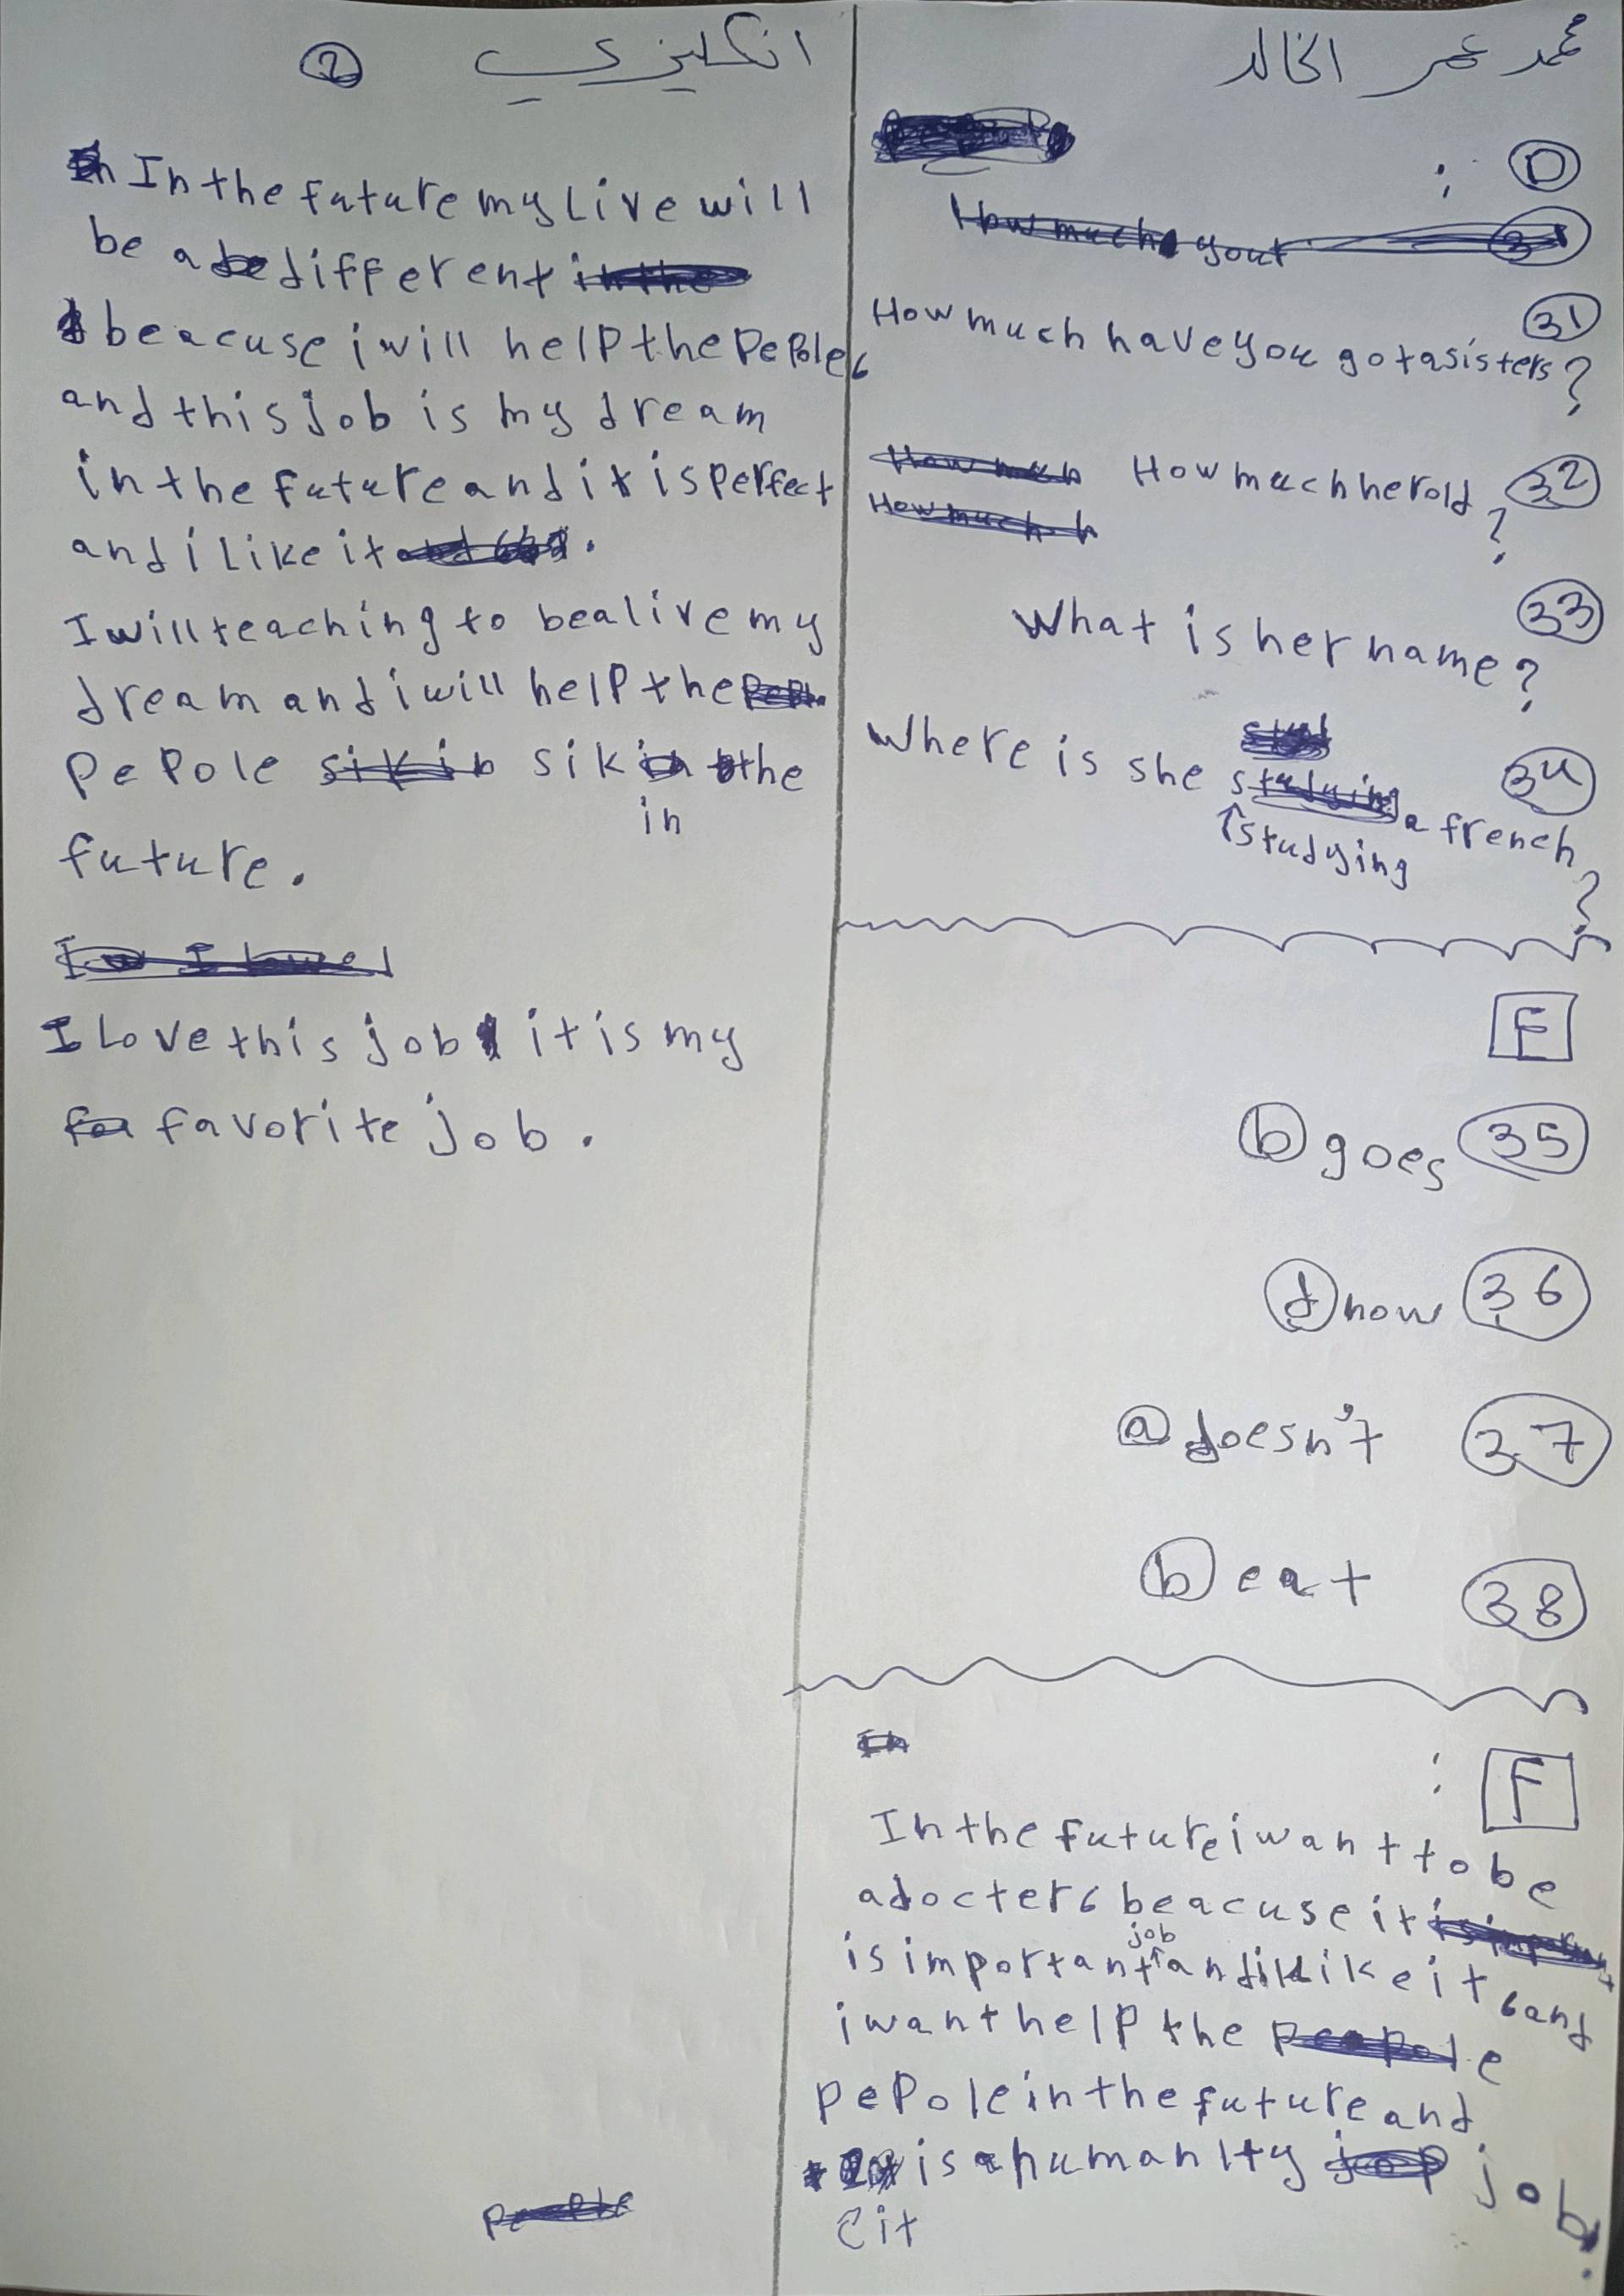 محمد عمر الخالد
D :
How much have you got a sisters ?
31
How much her old ?
32
What is her name ?
33
Where is she studying a french ?
34
E
35 b goes
36 d now
37 a doesn't
38 b eat
F :
In the future i want to be
a docter, beacuse it
is important job and i like it, and
i want help the
pepole in the future and
it is a humanity job.
انكليزي 2
In the future my live will
be a different
beacuse i will help the pepole,
and this job is my dream
in the future and it is perfect
and i like it .
I will teaching to be alive my
dream and i will help the
pepole sik in the
future.
I love this job it is my
favorite job .